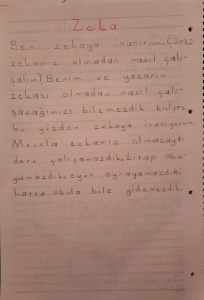 Zeka
Ben zekaya inanırım. Çünkü
zekamız olmadan nasıl çalı-
şalım? Benim ve yazarın
zekası olmadan nasıl çalı-
şacağımızı bilemezdik
bu yüzden zekaya inanıyorum
Mesela zekamız olmasaydı
ders çalışamazdık, kitap oku-
yamazdık, oyun oynayamazdık,
hatta okula bile gidemezdik.